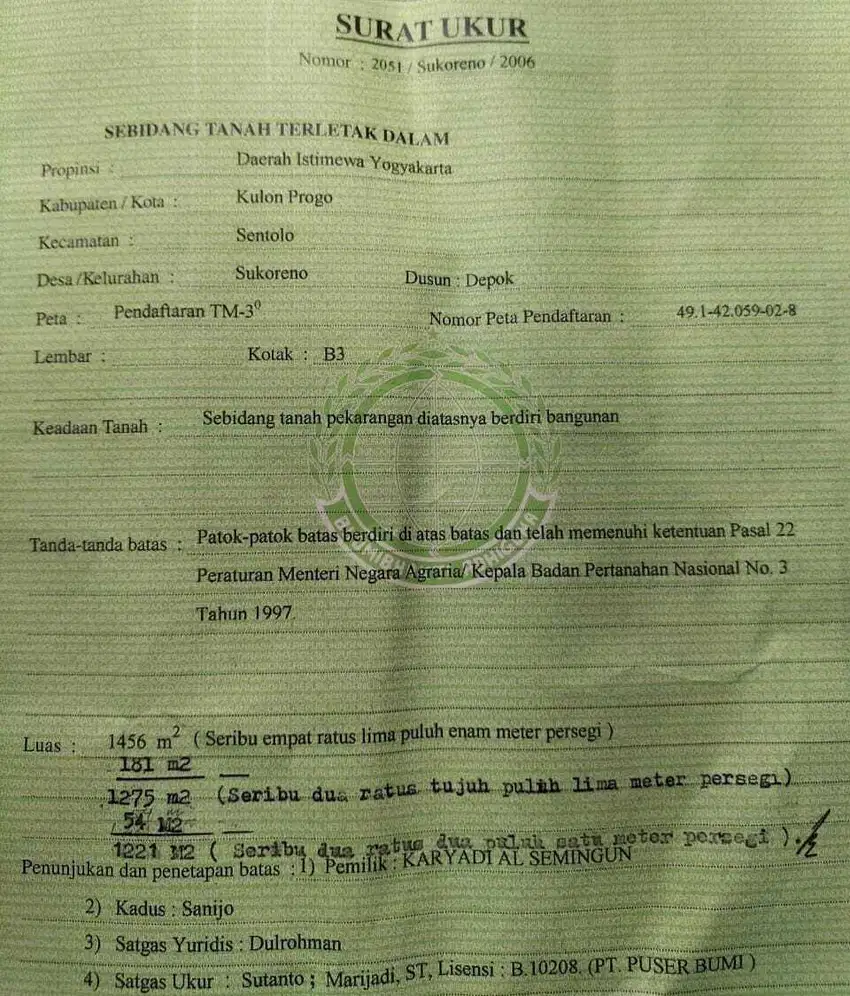 SURAT UKUR
Nomor : 2051 / Sukoreno / 2006
SEBIDANG TANAH TERLETAK DALAM
Propinsi : Daerah Istimewa Yogyakarta
Kabupaten / Kota : Kulon Progo
Kecamatan : Sentolo
Desa /Kelurahan : Sukoreno Dusun : Depok
Peta : Pendaftaran TM-3⁰ Nomor Peta Pendaftaran : 49.1-42.059-02-8
Lembar : Kotak : B3
Keadaan Tanah : Sebidang tanah pekarangan diatasnya berdiri bangunan
Tanda-tanda batas : Patok-patok batas berdiri di atas batas dan telah memenuhi ketentuan Pasal 22
Peraturan Menteri Negara Agraria/ Kepala Badan Pertanahan Nasional No. 3
Tahun 1997.
Luas : 1456 m² ( Seribu empat ratus lima puluh enam meter persegi )
181 m2
1275 m2 (Seribu dua ratus tujuh puluh lima meter persegi)
54 M2
1221 M2 ( Seribu dua ratus dua puluh satu meter persegi ).
Penunjukan dan penetapan batas : 1) Pemilik : KARYADI AL SEMINGUN
2) Kadus : Sanijo
3) Satgas Yuridis : Dulrohman
4) Satgas Ukur : Sutanto ; Marijadi, ST, Lisensi : B.10208. (PT. PUSER BUMI )